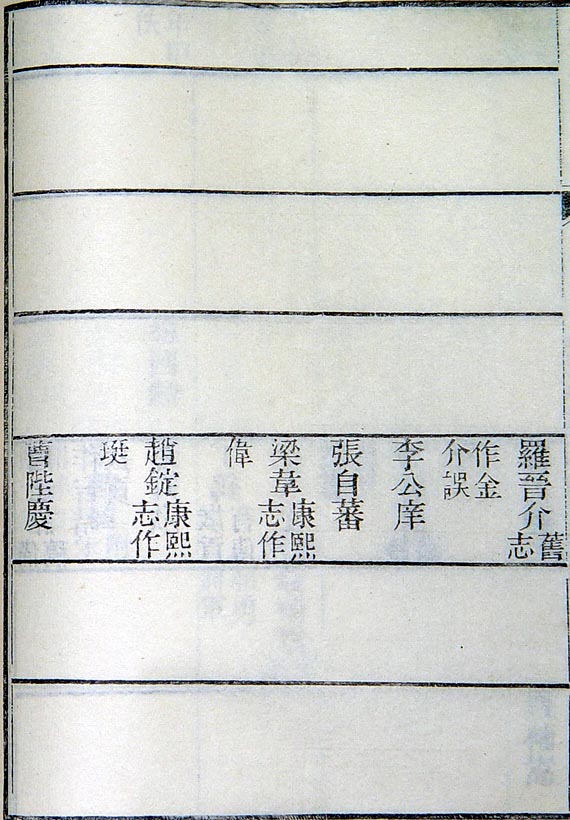 羅晉介舊志
作金介誤
李公庠
張自蕃
梁韋康熙志作
偉
趙錠康熙志作
珽
曹陛慶